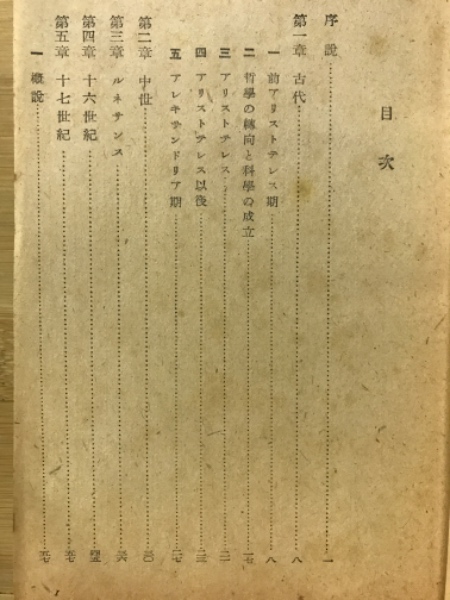 目次
序說……一
第一章 古代……八
一 前アリストテレス期……八
二 哲學の轉向と科學の成立……一七
三 アリストテレス……二一
四 アリストテレス以後……二三
五 アレキサンドリア期……二七
第二章 中世……三〇
第三章 ルネサンス……三六
第四章 十六世紀……四五
第五章 十七世紀……五七
一 概說……五七